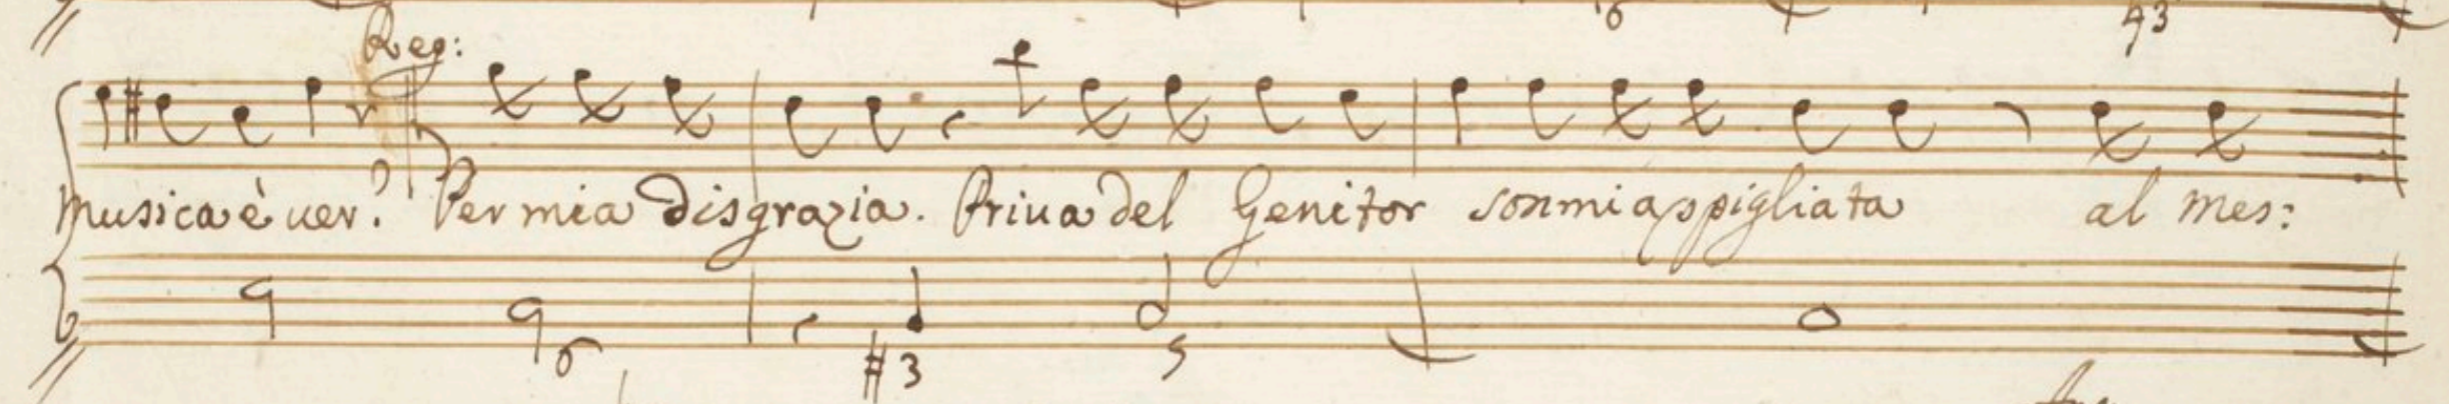 6 43
Reg:
musica è uer? Per mia disgrazia. Priua del Genitor son mi appigliata al mes:
6 #3 5